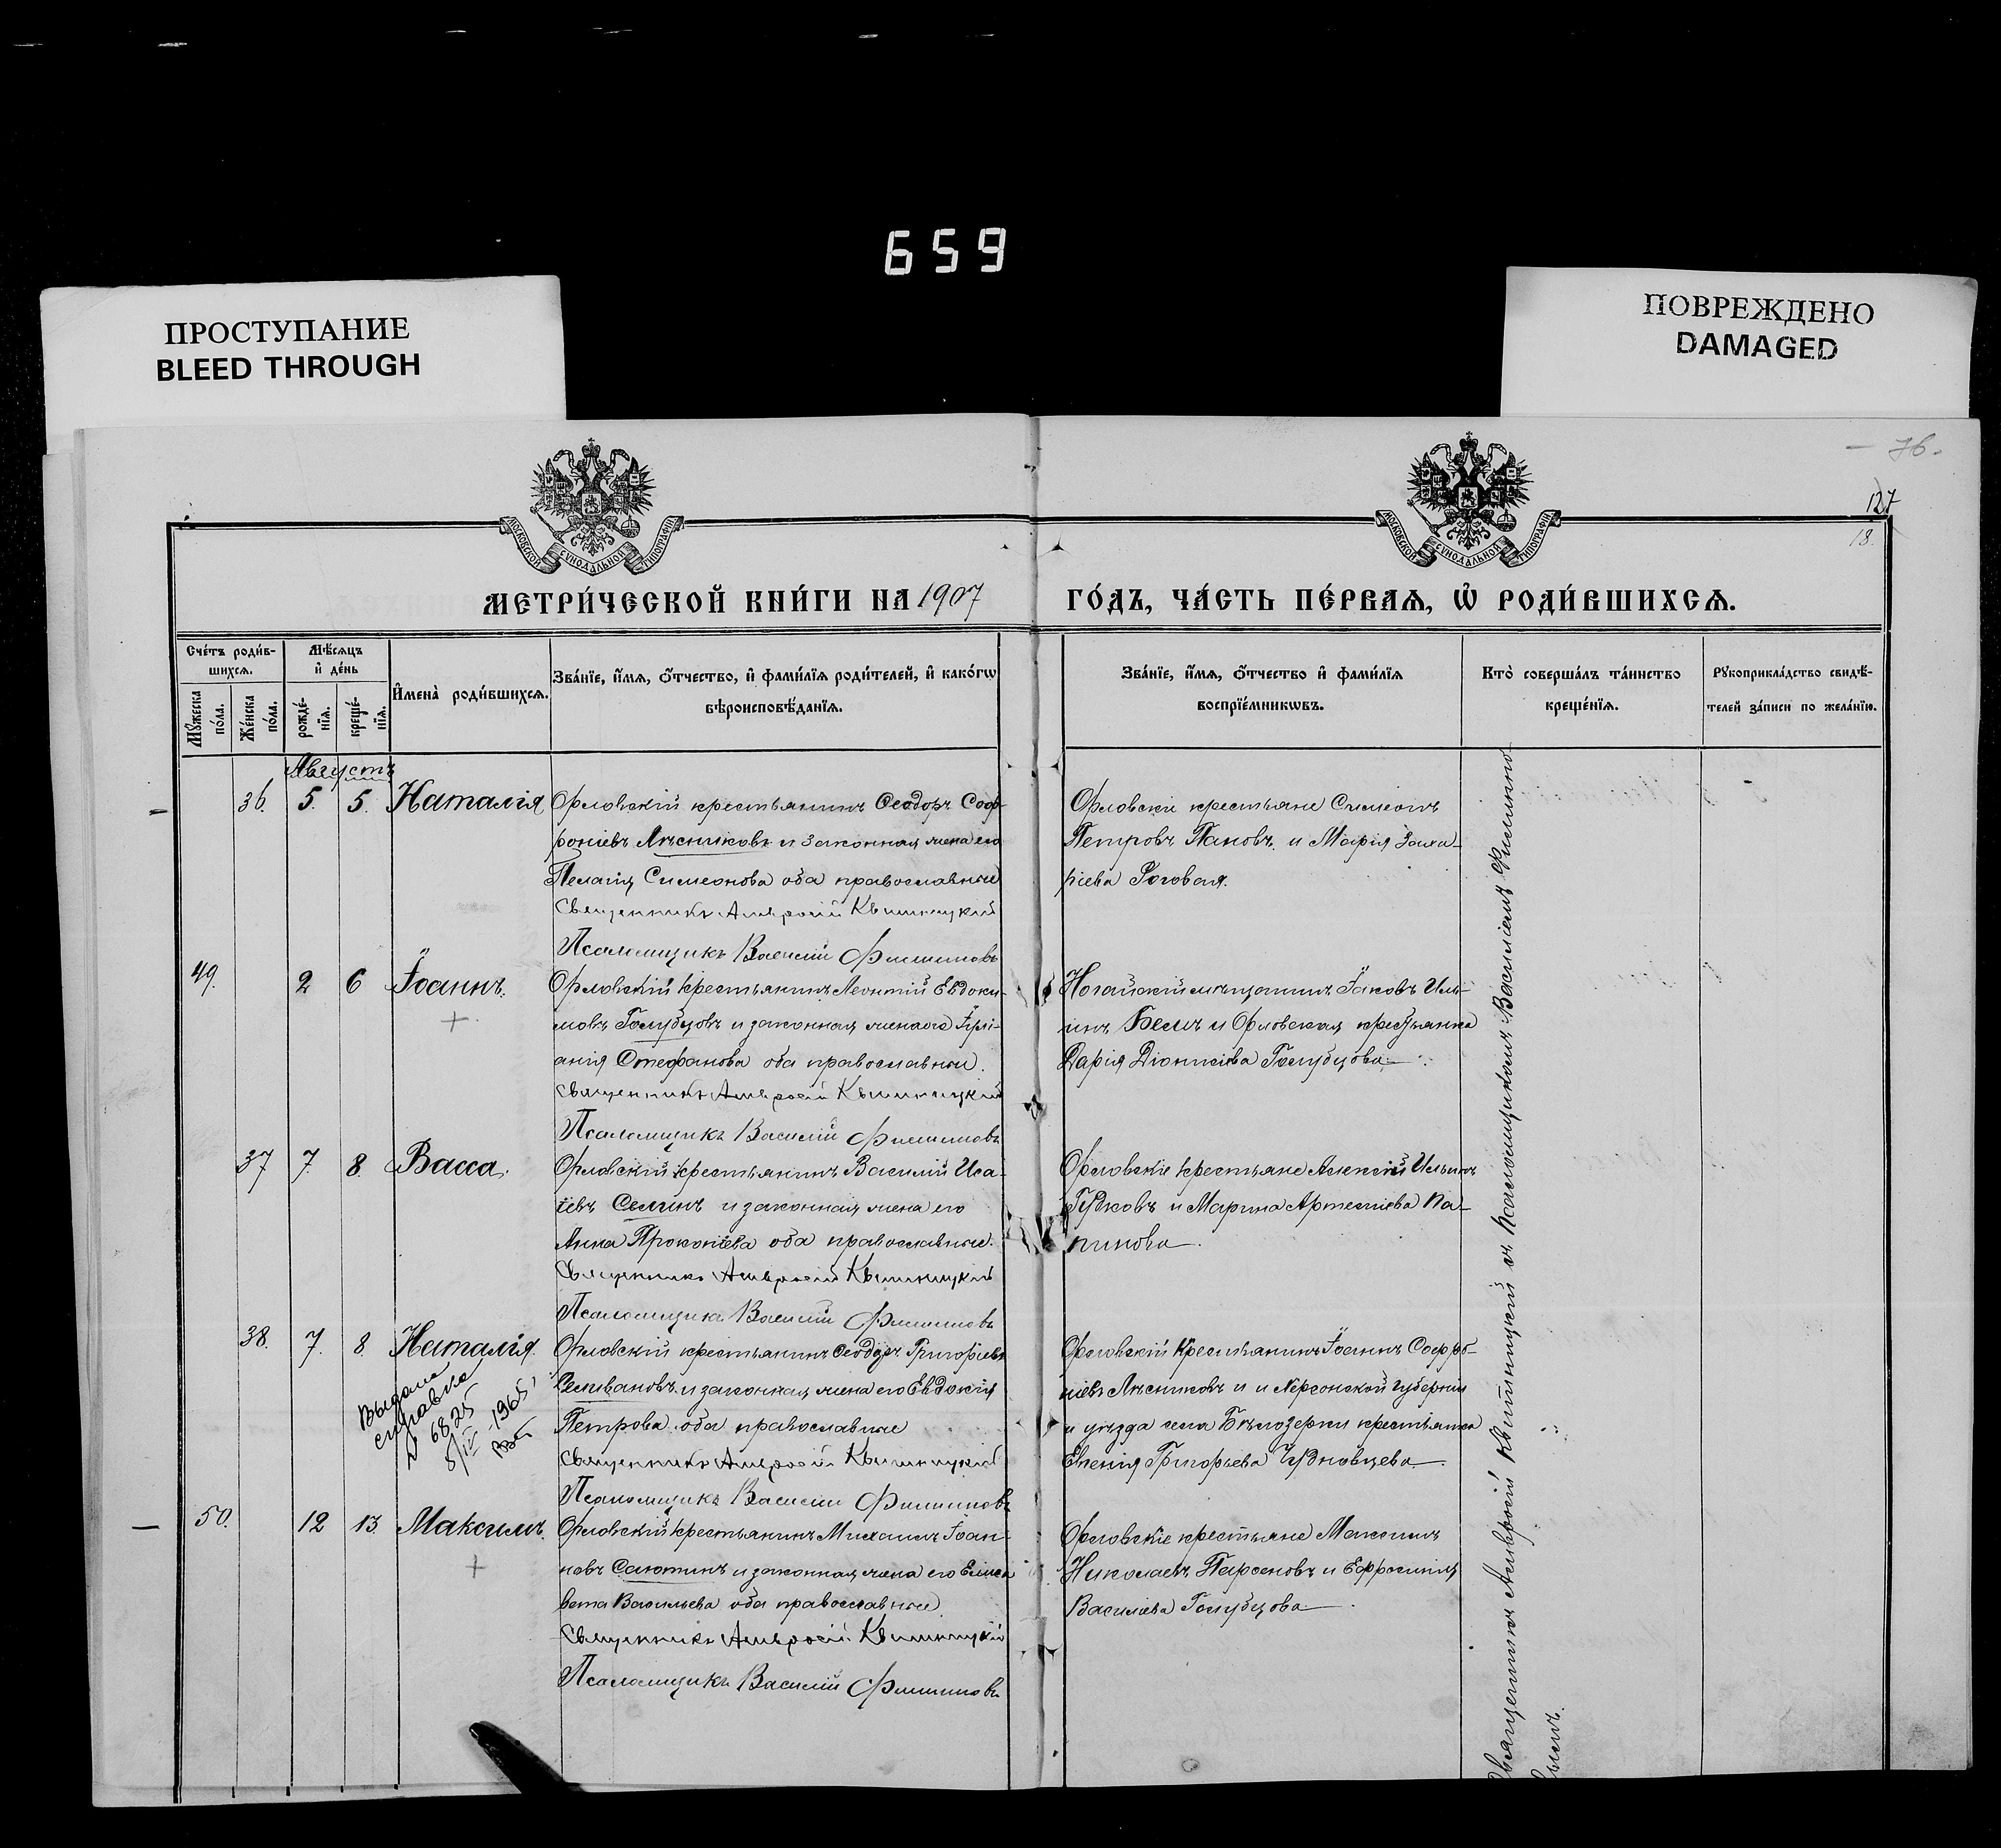 659
ПРОСТУПАНИЕ
BLEED THROUGH
ПОВРЕЖДЕНО
DAMAGED
76.
127
18.
МОСКОВСКОЙ СѴНОДАЛЬНОЙ ТИПОГРАФІИ
МОСКОВСКОЙ СѴНОДАЛЬНОЙ ТИПОГРАФІИ
МЕТРИ́ЧЕСКОЙ КНИ́ГИ НА 1907
ГО́ДЪ, ЧА́СТЬ ПЕ́РВАѦ, Ѡ҆ РОДИ́ВШИХСѦ.
Сче́тъ роди́в-
шихсѧ.
Мꙋ́жеска по́ла.
Же́нска по́ла.
Мѣ́сѧцъ
и҆ де́нь
рожде́-
нїѧ.
креще́-
нїѧ.
И҆мена̀ роди́вшихсѧ.
Зва́нїе, и҆́мѧ, ѻ҆́тчество, и҆ фами́лїѧ роди́телей, и҆ како́гѡ
вѣроисповѣ́данїѧ.
Зва́нїе, и҆́мѧ, ѻ҆́тчество и҆ фами́лїѧ
воспрїе́мникѡвъ.
Кто̀ соверша́лъ та́инство
креще́нїѧ.
Рꙋкоприкла́дство свидѣ́-
телей за́писи по жела́нїю.
Августъ
36. 5. 5. Наталія
Орловскій крестьянинъ Ѳеодоръ Соф-
роніевъ Лѣсниковъ и законная жена его
Пелагія Симеонова оба православные
Священникъ Амвросій Квитницкій
Псаломщикъ Василій Филиповъ
Орловскіе крестьяне Симеонъ
Петровъ Пановъ и Марія Заха-
ріева Роговая.
49. 2 6 Іоаннъ.
+
Орловскій крестьянинъ Леонтій Евдоки-
мовъ Голубцовъ и законная жена его Іулі-
анія Стефанова оба православные.
Священникъ Амвросій Квитницкій
Псаломщикъ Василій Филиповъ
Ногайскій мѣщанинъ Іаковъ Иль-
инъ и Орловская крестьянка
Дарія Діонисіева Голубцова
37 7. 8. Васса.
Орловскій крестьянинъ Василій Иса-
іевъ Селинъ и законная жена его
Анна Прокопіева оба православные.
Священникъ Амвросій Квитницкій
Псаломщикъ Василій Филиповъ
Орловскіе крестьяне Алексій Ильинъ
Гудковъ и Марина Артеміева Па-
пинова
38. 7. 8. Наталія.
Выдана
справка
N 6825
8/IV-1965
Орловскій крестьянинъ Ѳеодоръ Григоріевъ
Селивановъ и законная жена его Евдокія
Петрова оба православные
Священникъ Амвросій Квитницкій
Псаломщикъ Василій Филиповъ
Орловскій крестьянинъ Іоаннъ Софро-
ніевъ Лѣсниковъ и и Херсонской губерніи
и уѣзда села Бѣлозерки крестьянка
Григорьева Чудновцева
50. 12 13. Максимъ.
+
Орловскій крестьянинъ Михаилъ Іоан-
новъ Сажтинъ и законная жена его Елиса
вета Васильева оба православные
Священникъ Амвросій Квитницкій
Псаломщикъ Василій Филиповъ
Орловскіе крестьяне Максимъ
Николаевъ Парсеновъ и Евфросинія
Василіева Голубцова
Священникъ Амвросій Квитницкій съ псаломщикомъ Василіемъ Филипо-
вымъ.